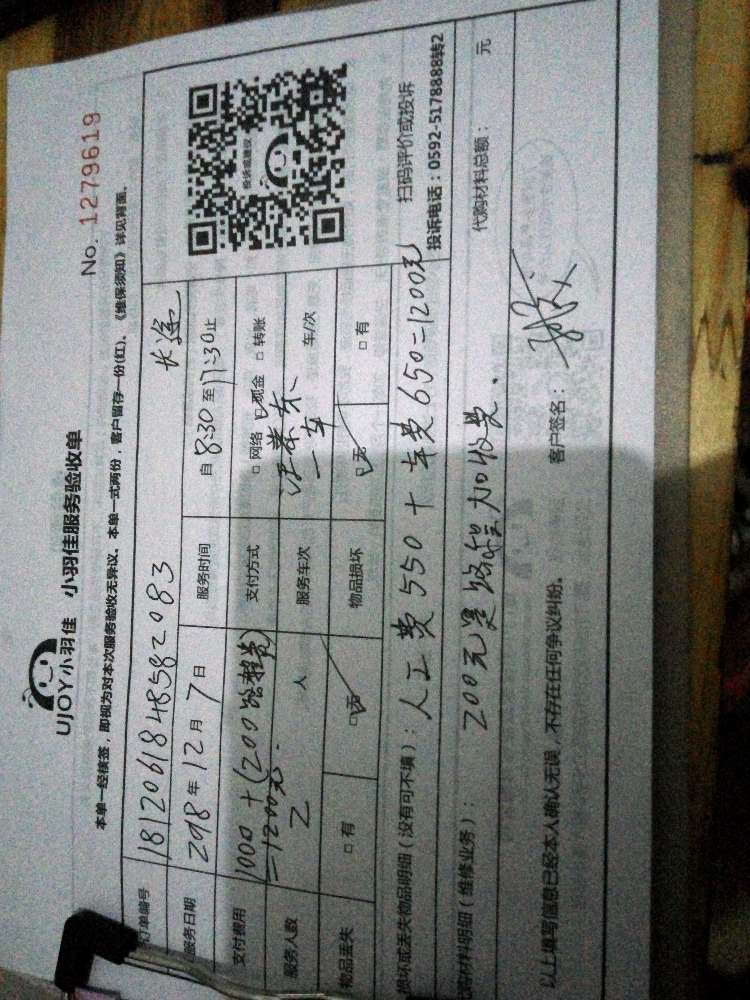 UJOY小羽佳 小羽佳服务验收单
No. 1279619
本单一经核签，即视为对本次服务验收无异议。本单一式两份，客户留存一份(红)、《维保须知》详见背面。
订单编号 1812061848582083 长途
服务日期 2018年12月7日 服务时间 自8:30至17:30止
支付费用 1000+(200路程费 =1200元. 支付方式 □网络 ☑现金 □转账
服务人数 2 人 服务车次 一车 车/次
物品丢失 □有 ☑无 物品损坏 ☑无 □有
投诉或建议
扫码评价或投诉
投诉电话：0592-5178888转2
损坏或丢失物品明细（没有可不填）：人工费550+车费650=1200元
代购材料明细（维修业务）：200元是路程加收费. 代购材料总额： 元
以上填写信息已经本人确认无误，不存在任何争议纠纷。 客户签名：